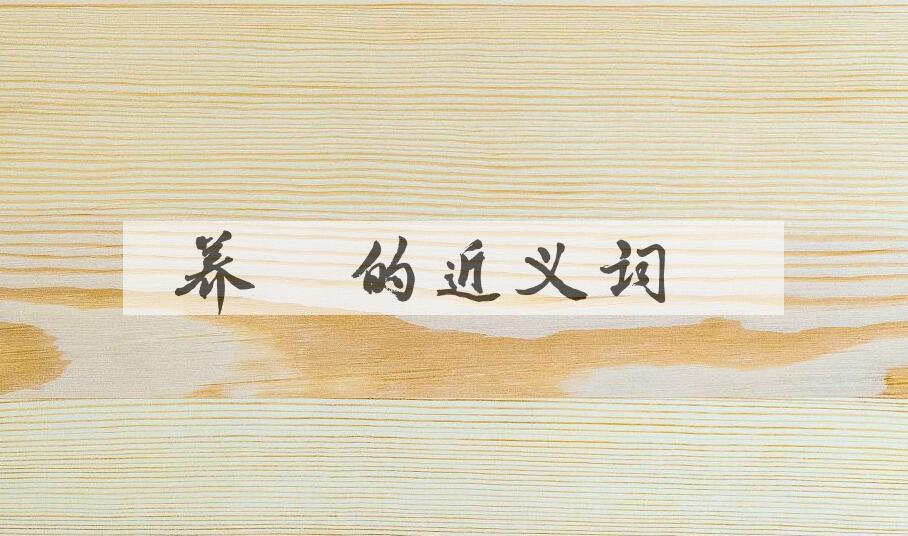 养 的近义词